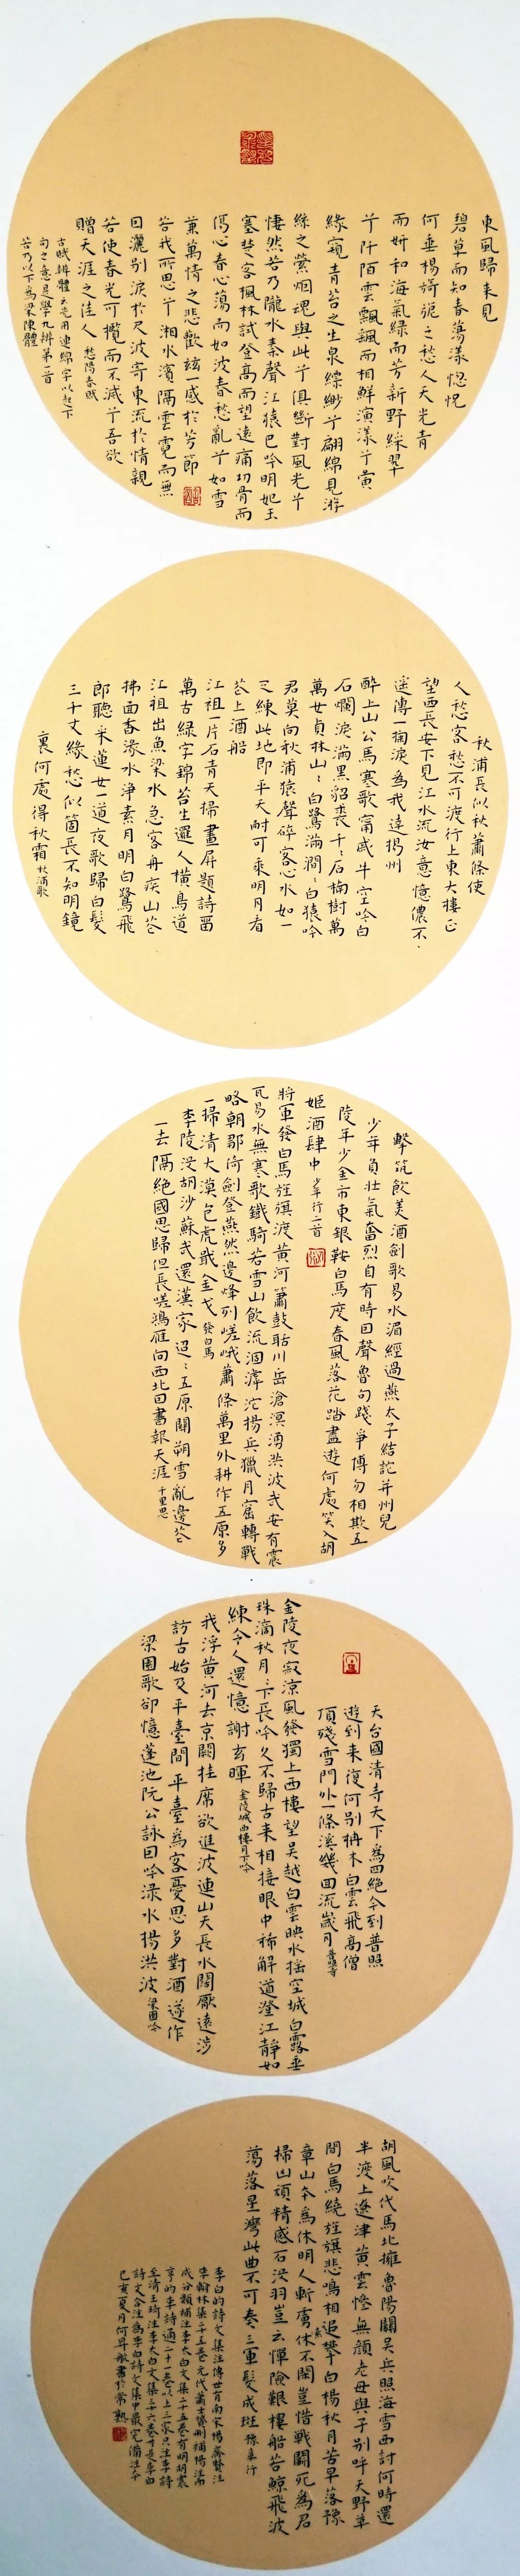 東風歸來見
碧草而知春蕩漾惚怳
何垂楊旖旎之愁人天光青
而妍和海氣綠而芳新野綵翠
兮阡陌雲飄颻而相鮮演漾兮黃
緣窺青苔之生泉縹緲兮翩綿見游
絲之縈烟魂與此兮俱斷對風光兮
悽然若乃隴水秦聲江猿巴吟明妃玉
塞楚客楓林試登高而望遠痛切骨而
傷心春心蕩而如波春愁亂兮如雪
兼萬情之悲歡茲一感於芳節
若我所思兮湘水濱隔雲霓而無
因灑別淚於尺波寄東流於情親
若使春光可攬而不滅兮吾欲
贈天涯之佳人 愁陽春賦
古賦辨體云先用連綿字以起下
句之意是學九辨第一首
若乃以下為梁陳體
秋浦長似秋蕭條使
人愁客愁不可渡行上東大樓正
望西長安下見江水流汝意憶儂不
遙傳一掬淚為我達揚州
醉上山公馬寒歌甯戚牛空吟白
石爛淚滿黑貂裘千千石楠樹萬
萬女貞林山山白鷺滿澗澗白猿吟
君莫向秋浦猿聲碎客心水如一
匹練此地即平天耐可乘明月看
花上酒船
江祖一片石青天掃畫屏題詩留
萬古綠字錦苔生邏人橫鳥道
江祖出魚梁水急客舟疾山花
拂面香淥水淨素月明白鷺飛
郎聽采蓮女一道夜歌歸白髮
三千丈緣愁似箇長不知明鏡
裏何處得秋霜 秋浦歌
擊筑飲美酒劍歌易水湄經過燕太子結託并州兒
少年負壯氣奮烈自有時因聲魯句踐爭博勿相欺五
陵年少金市東銀鞍白馬度春風落花踏盡遊何處笑入胡
姬酒肆中 少年行二首
將軍發白馬旌旗渡黃河簫鼓聒川岳滄溟湧洪波武安有震
瓦易水無寒歌鐵騎若雪山飲流涸滹沱揚兵獵月窟轉戰
略朝那倚劍登燕然邊烽列嵯峨蕭條萬里外耕作五原多
一掃清大漠包虎戢金戈 發白馬
李陵沒胡沙蘇武還漢家迢迢五原關朔雪亂邊花
一去隔絕國思歸但長嗟鴻雁向西北因書報天涯 千里思
天台國清寺天下為四絕今到普照
遊到來復何別柟木白雲飛高僧
頂殘雪門外一條溪幾回流歲月 普照寺
金陵夜寂涼風發獨上西樓望吳越白雲映水搖空城白露垂
珠滴秋月下長吟久不歸古來相接眼中稀解道澄江靜如
練令人還憶謝玄暉 金陵城西樓月下吟
我浮黃河去京闕挂席欲進波連山天長水闊厭遠涉
訪古始及平臺間平臺為客憂思多對酒遂作
梁園歌卻憶蓬池阮公詠因吟淥水揚洪波 梁園吟
胡風吹代馬北擁魯陽關吳兵照海雪西討何時還
半渡上遼津黃雲慘無顏老母與子別呼天野草
間白馬繞旌旗悲鳴相追攀白楊秋月苦早落豫
章山本為休明人斬虜素休不閑豈惜戰鬬死為君
掃凶頑精感石沒羽豈云憚險艱樓船若鯨飛波
蕩落星灣此曲不可奏三軍髮成斑 豫章行
李白的詩文集注傳世有南宋楊齋賢注
李翰林集二十五卷元代蕭士贇刪補楊注而
成分類補注李太白文集二十五卷有明胡震
亨的李詩通二十一卷以上三家只注李詩
至清王琦注李太白文集三十六卷才是李白
詩文合注為李白詩文集中最完備注本
己亥夏月何昇敏書於常熟